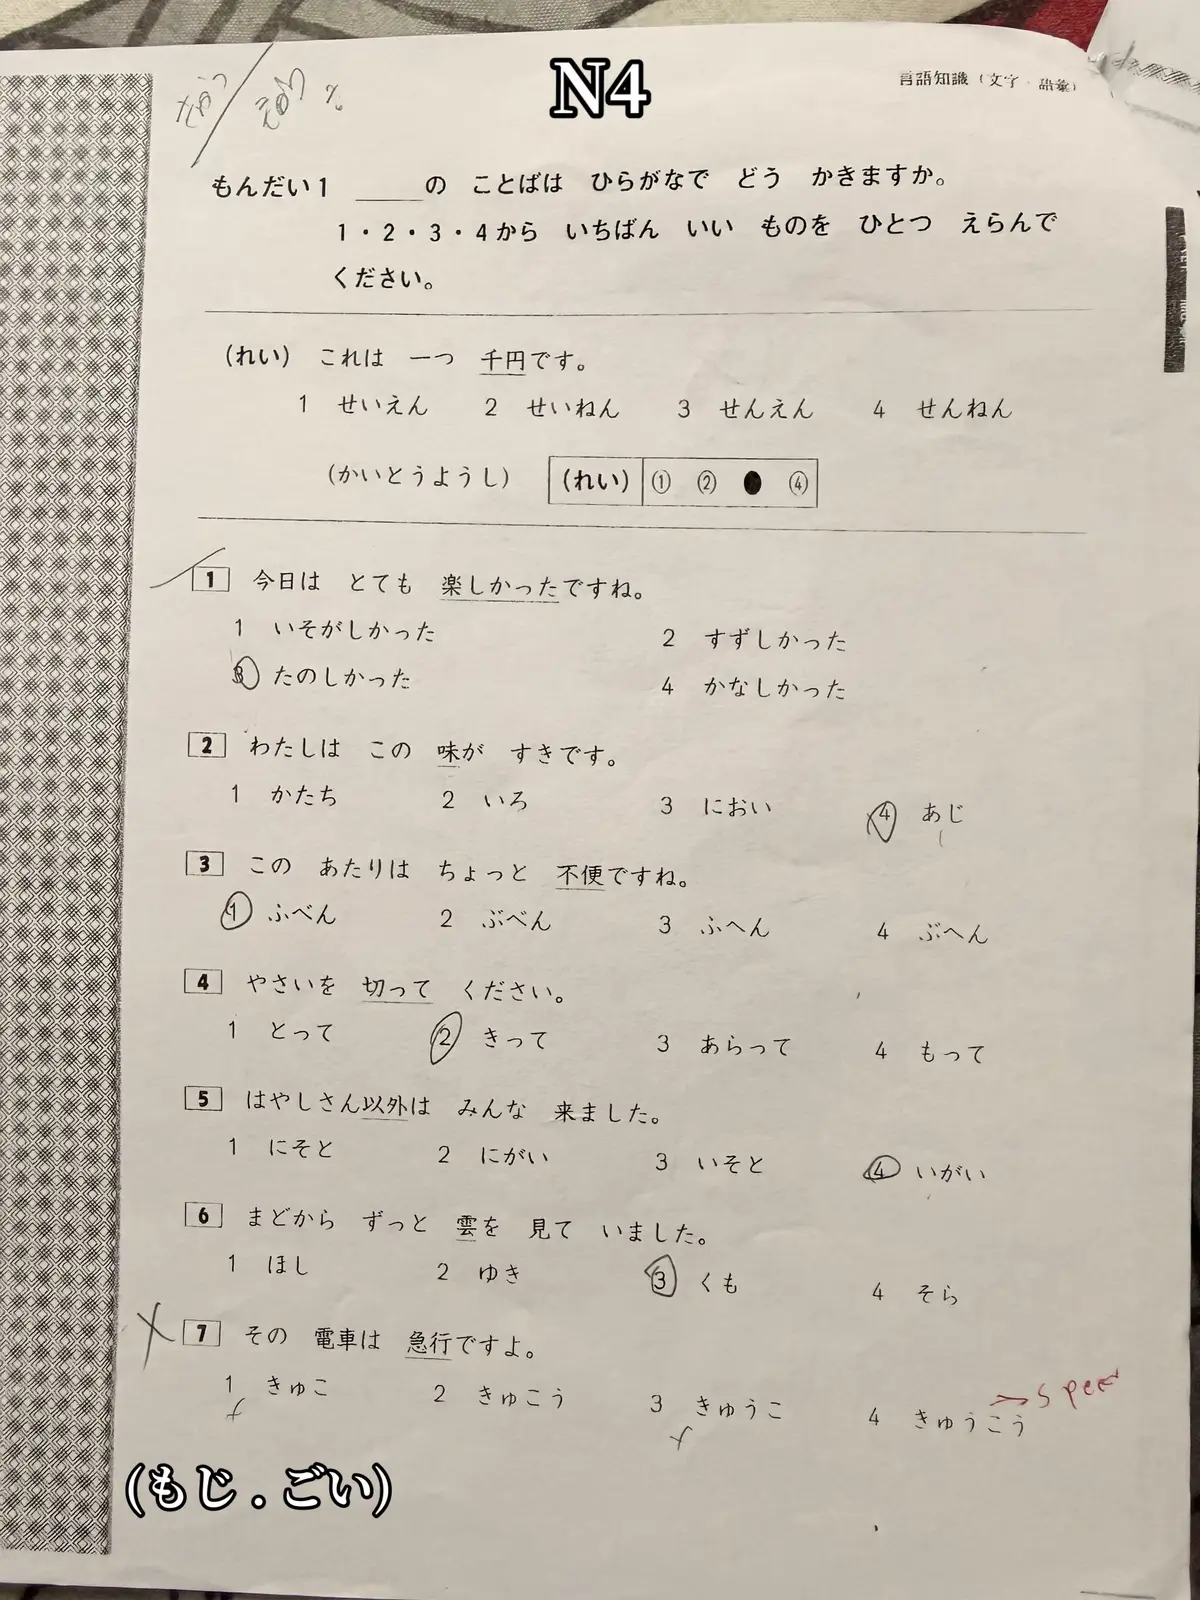 N4
言語知識(文字・語彙)
もんだい1 ____の ことばは ひらがなで どう かきますか。
1・2・3・4から いちばん いい ものを ひとつ えらんで
ください。
(れい) これは 一つ 千円です。
1 せいえん 2 せいねん 3 せんえん 4 せんねん
(かいとうようし) (れい) ① ② ● ④
1 今日は とても 楽しかったですね。
1 いそがしかった 2 すずしかった
3 たのしかった 4 かなしかった
2 わたしは この 味が すきです。
1 かたち 2 いろ 3 におい 4 あじ
3 この あたりは ちょっと 不便ですね。
1 ふべん 2 ぶべん 3 ふへん 4 ぶへん
4 やさいを 切って ください。
1 とって 2 きって 3 あらって 4 もって
5 はやしさん以外は みんな 来ました。
1 にそと 2 にがい 3 いそと 4 いがい
6 まどから ずっと 雲を 見て いました。
1 ほし 2 ゆき 3 くも 4 そら
7 その 電車は 急行ですよ。
1 きゅこ 2 きゅこう 3 きゅうこ 4 きゅうこう
(もじ.ごい)